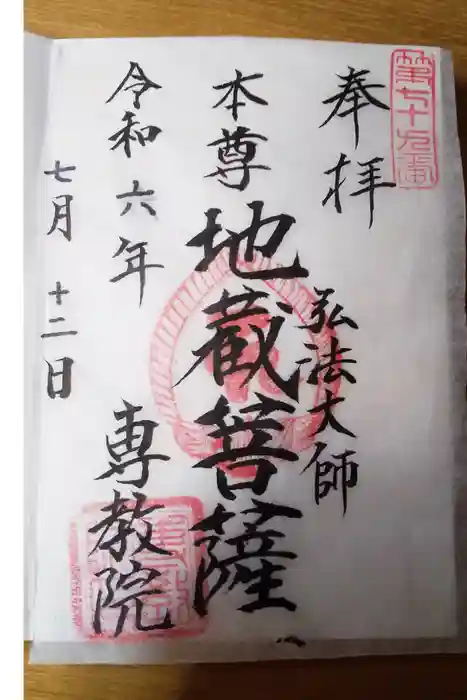 第七十九番
奉拝
弘法大師
本尊
地蔵菩薩
令和六年
七月十二日
専教院